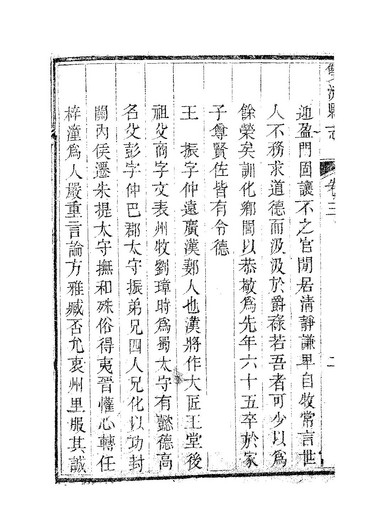 迎盈門固讓不之官閒居清靜謙畢自牧常言世
人不務求道德而汲汲於爵祿若吾者可少以為
餘榮矣訓化鄉閭以恭敬為先年六十五卒於家
子尊賢佐皆有令德
王振字仲遠廣漢郪人也漢將作大匠王堂後
祖父商字文表州牧劉璋時為蜀太守有懿德高
名父彭字仲巴郡太守振弟兄四人兄化以功封
關內侯遷朱提太守撫和殊俗得夷晉懽心轉任
梓潼為人嚴重言論方雅臧否允衷州里服其誠
縣志
卷三